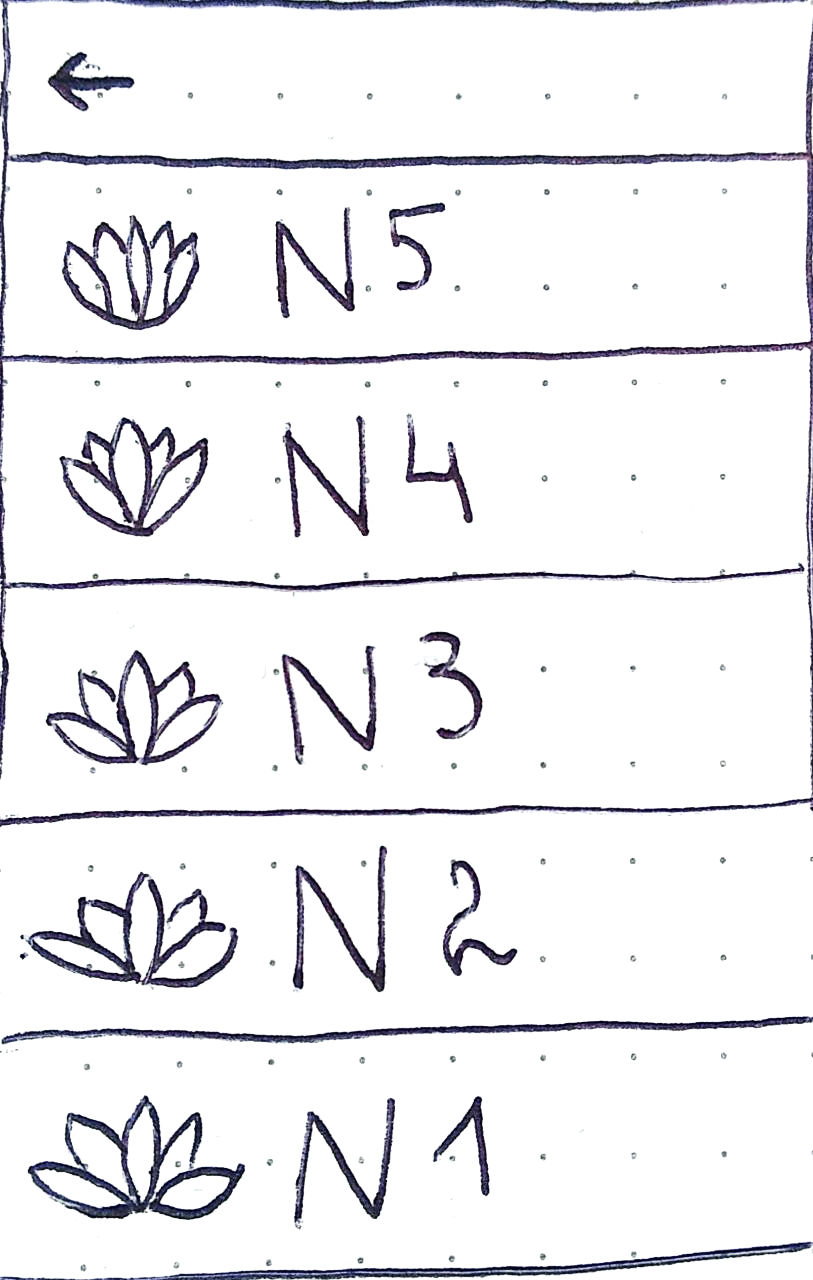 ←
N5
N4
N3
N2
N1